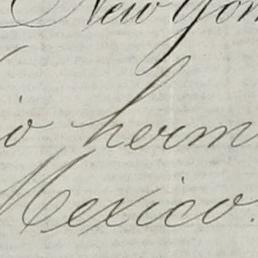 New York
io herm
Mexico.